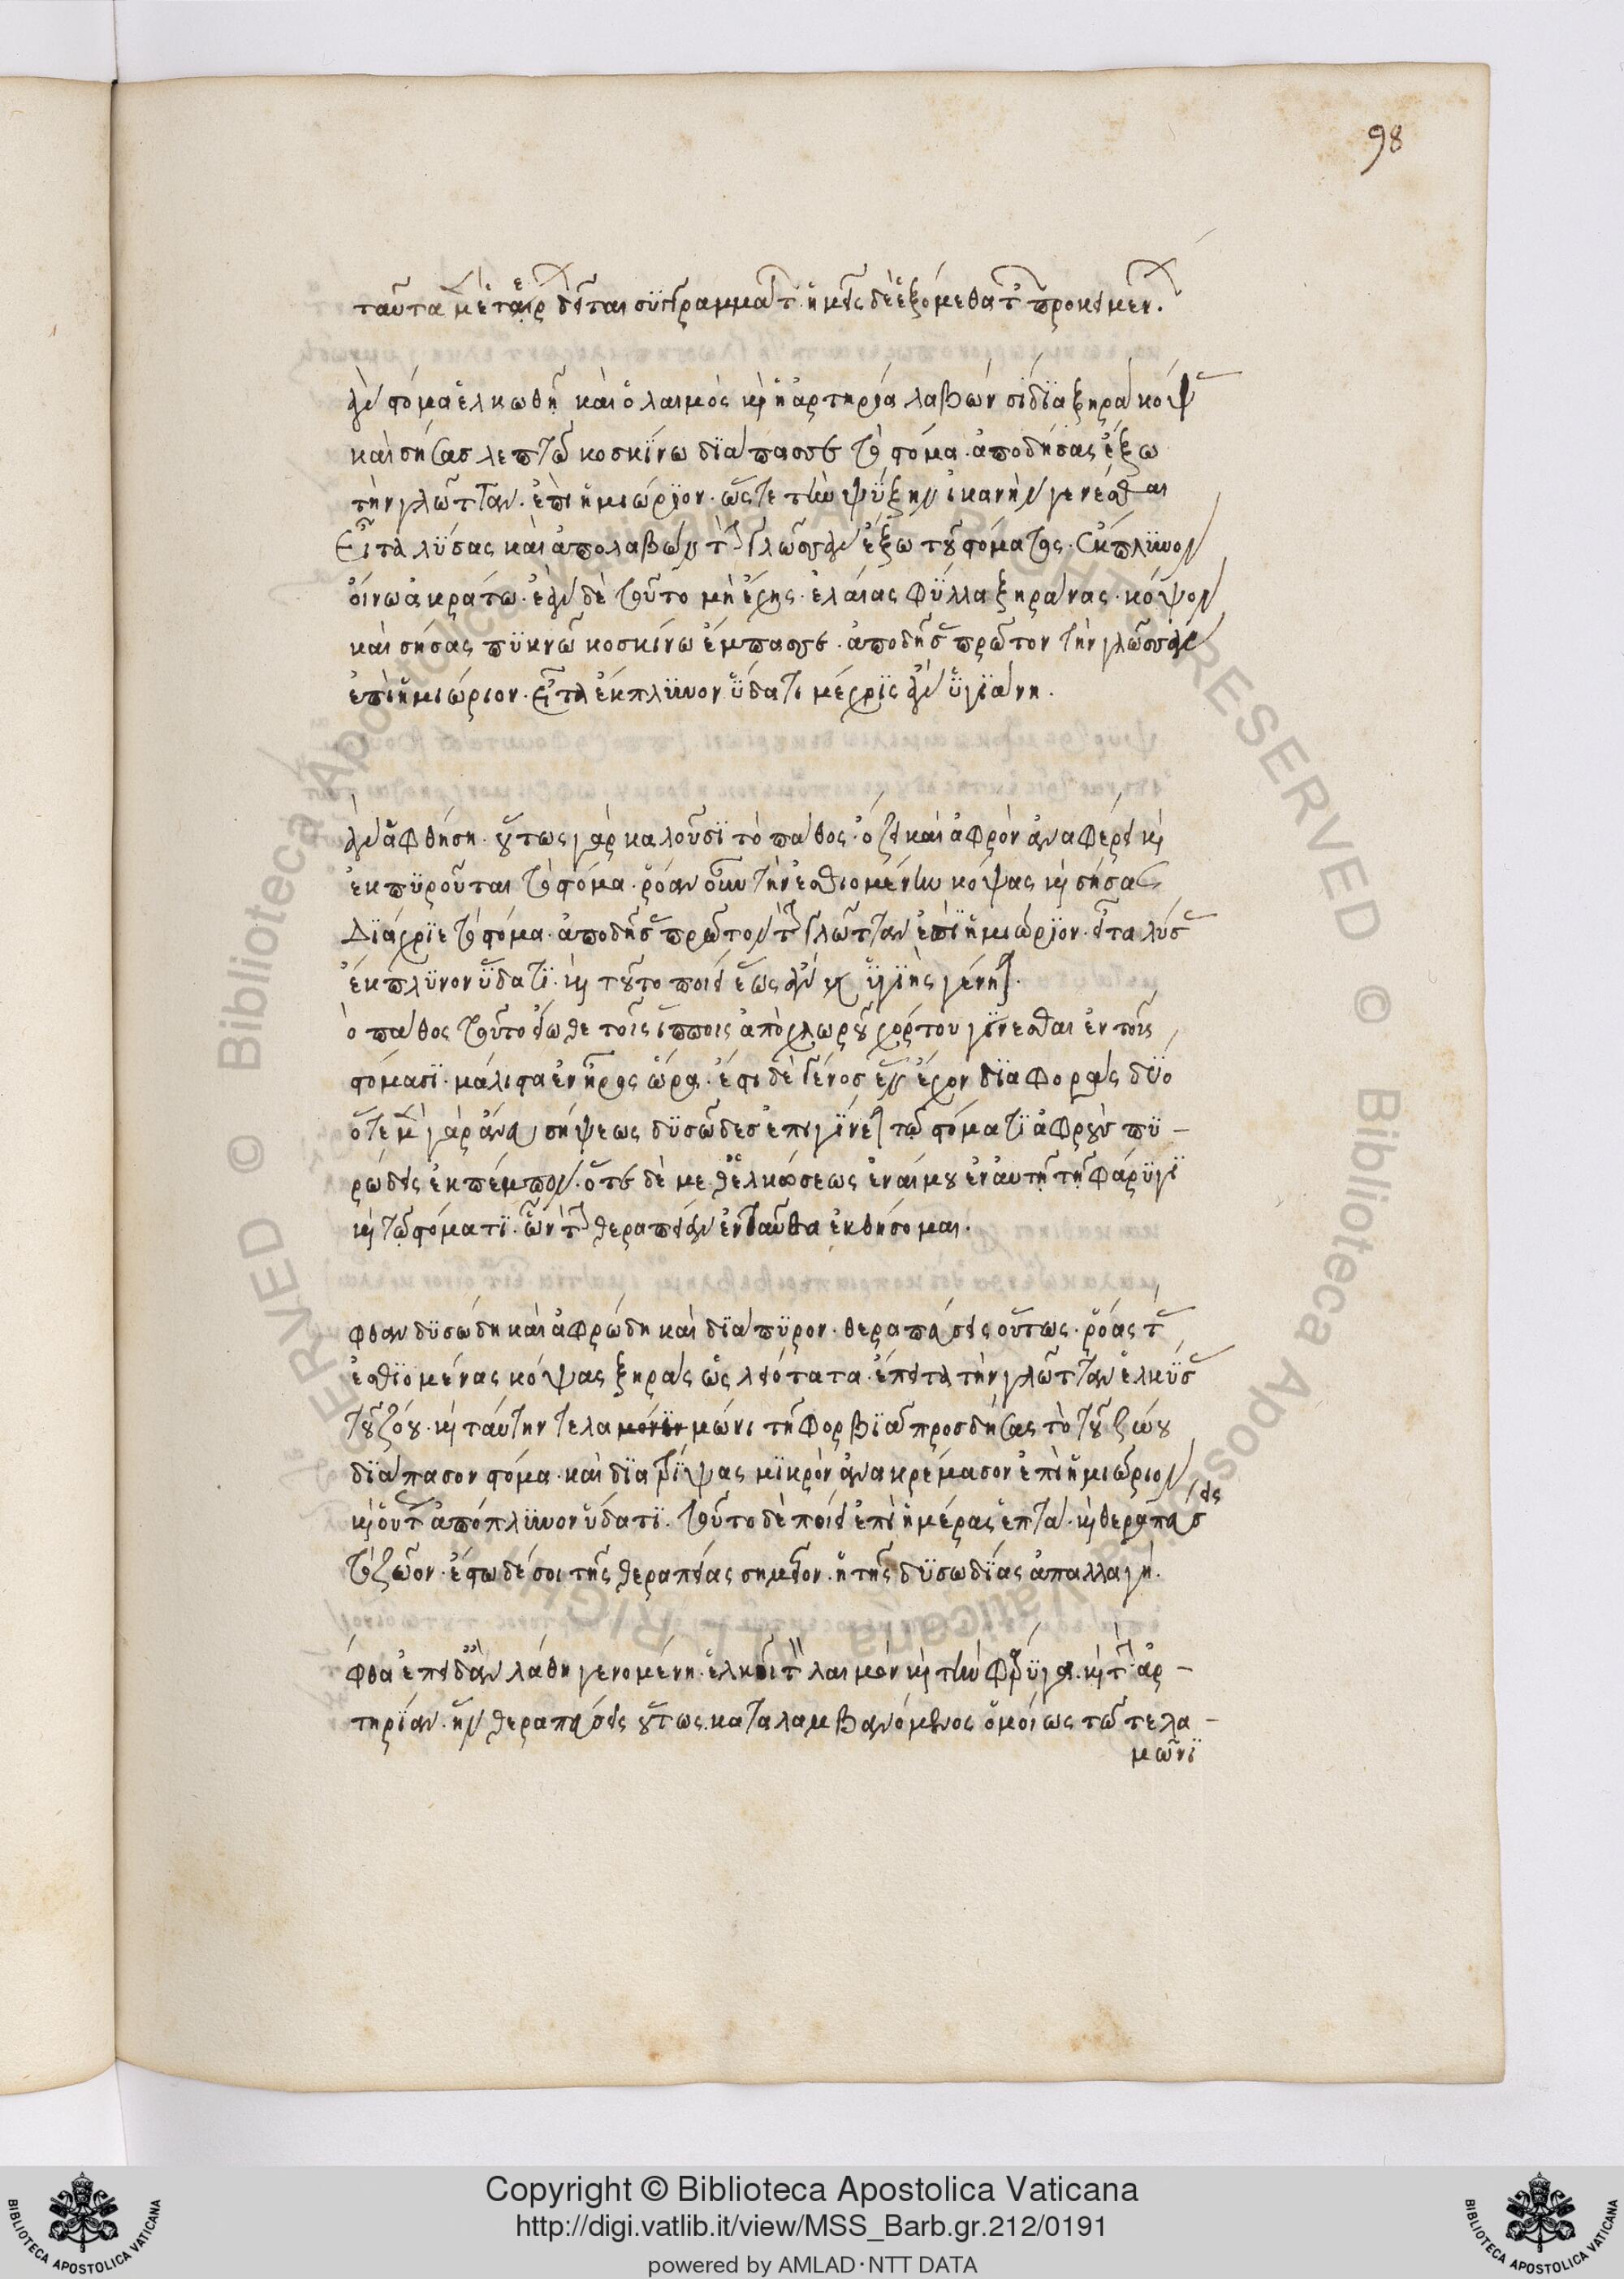 98
ταῦτα μὲν ἑταιρ δεῖται συγγράμματ. ἡμεῖς δὲ ἑξόμεθα τ προκειμέν.
ἂν στόμα ἑλκωθῆ καὶ ὁ λαιμὸς καὶ ἡ ἀρτηρία λαβὼν σίδϊα ξηρὰ κόψ
καὶ σήσας λεπτῶ κοσκϊνω δϊάπασσε τὸ στόμα. ἀποδήσας ἔξω
τὴν γλῶτταν. ἐπὶ ἡμιώρϊον. ὥστε τὴν ψύξην ἱκανὴν γενέσθαι
Εἶτα λύσας καὶ ἀπολαβὼν τ γλῶσσαν ἔξω τοῦ στόματος. ἔκπλυνον
οἴνω ἀκράτω. ἐὰν δὲ τοῦτο μὴ ἔχης. ἐλαίας φύλλα ξηράνας. κόψον
καὶ σήσας πϋκνῶ κοσκίνω ἔμπασσε. ἀποδήσ πρῶτον τὴν γλῶσσαν
ἐπὶ ἡμιώριον. Εἶτα ἔκπλυνον ὕδατι μέχρϊς ἂν ὑγϊάνη.
ἂν ἀφθήση. οὕτως γὰρ καλοῦσϊ τὸ πάθος. ὄζει καὶ ἀφρὸν ἀναφέρει καὶ
ἐκπϋροῦται τὸ στόμα. ῥόαν οὖν τὴν ἐσθιομένην κόψας καὶ σήσας
Δϊάχρϊε τὸ στόμα. ἀποδήσ πρῶτον τ γλῶτταν ἐπϊ ἡμιώρϊον. εἶτα λύσ
ἔκπλϋνον ὕδατϊ. καὶ τοῦτο ποίει ἕως ἂν ὑγϊὴς γένη.
ὸ πάθος τοῦτο εἴωθε τοῖς ἵπποις ἀπὸ χλωροῦ χόρτου γίνεσθαι ἐν τοῖς
στόμασϊ. μάλιστα ἐν ἦρος ὥρα. ἔστι δὲ γένος ἓν ἔχον δϊαφορὰς δύο
ὅτε μ γὰρ ἄνευ σήψεως δϋσῶδες ἐπιγίνε τῶ στόματϊ ἀφροὺς πϋ-
ρώδεις ἐκπέμπον. ὅτε δὲ με θ ἑλκώσεως ἐναίμου ἐν αὐτῆ τῆ φάρϋγϊ
καὶ τῶ στόματϊ. ὧν τ θεραπείαν ἐνταῦθα ἐκθήσομαι.
φθαν δϋσώδη καὶ ἀφρώδη καὶ δϊάπϋρον. θεραπεύσεις οὕτως. ῥόας τ
ἐσθϊομένας κόψας ξηρὰς ὡς λειότατα. ἔπειτα τὴν γλῶτταν ἑλκύσ
τοῦ ζώου. καὶ ταύτην τελαμόνϊν μώνι τῆ φορβϊᾶ προσδήσας τὸ τοῦ ζώου
δϊάπασον στόμα. καὶ δϊατρίψας μϊκρὸν ἀνακρέμασον ἐπὶ ἡμιώριον
καὶ οὕτ ἀπόπλυνον ὕδατϊ. τοῦτο δὲ ποίει ἐπὶ ἡμέρας ἑπτά. καὶ θεραπεύσεις
τὸ ζῶον. ἔστω δέ σοι τῆς θεραπείας σημεῖον. ἡ τῆς δϋσωδϊας ἀπαλλαγή.
φθα ἐπειδὰν λάθη γενομένη. ἑλκοῖ τ λαιμὸν καὶ τὴν φάρϋγα. καὶ τ ἀρ-
τηρϊαν. ἣν θεραπεύσεις οὕτως. καταλαμβανόμενος ὁμοίως τῶ τελα-
μῶνϊ
Copyright © Biblioteca Apostolica Vaticana
http://digi.vatlib.it/view/MSS_Barb.gr.212/0191
powered by AMLAD·NTT DATA